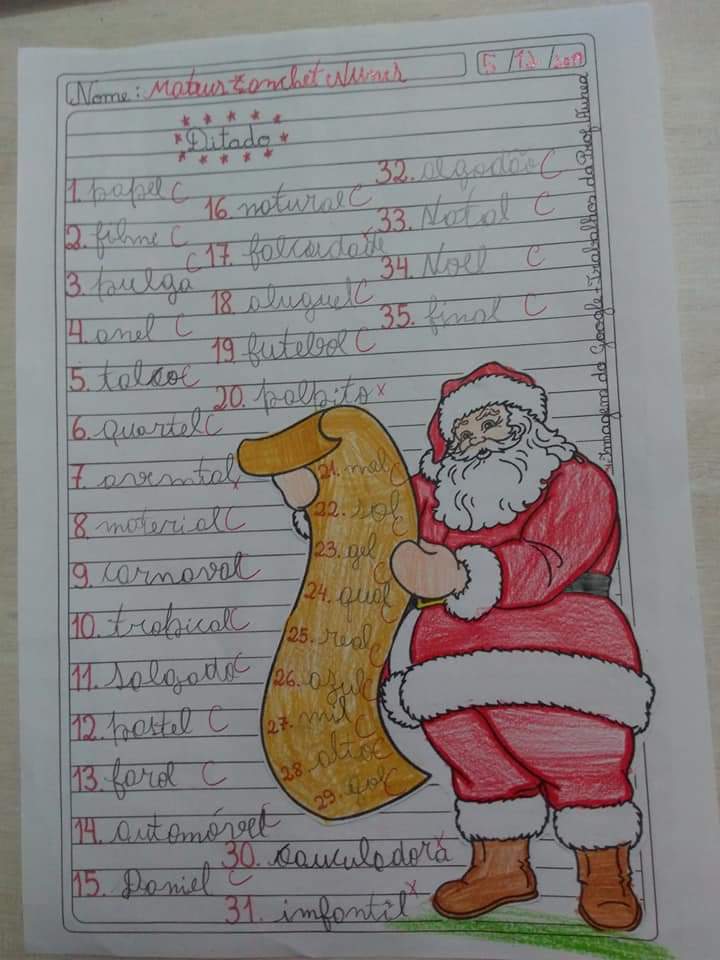 Nome: Mateus Zanchet Nunes 5/12/2017
Ditado
1. papel C
2. filme C
3. pulga C
4. anel C
5. talco C
6. quartel C
7. avemtal x
8. material C
9. carnaval C
10. tropical C
11. salgado C
12. pastel C
13. farol C
14. automóvel C
15. Daniel C
16. natural C
17. falcudade x
18. aluguel C
19. futebol C
20. palpito x
21. mal C
22. sol C
23. gel C
24. qual C
25. real C
26. azul C
27. mil C
28. alto C
29. gol C
30. cauculadora x
31. imfantil x
32. algodão C
33. Natal C
34. Noel C
35. final C
*Imagem do Google *Trabalhos da Prof.